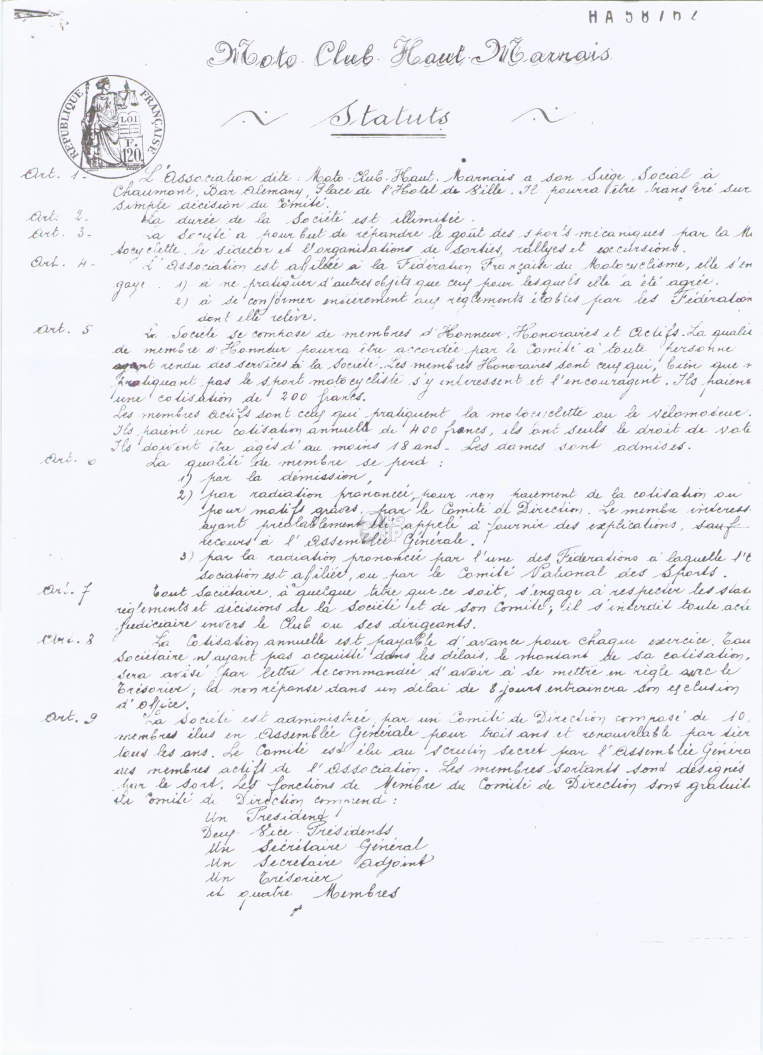 HA 58/02
Moto-Club-Haut-Marnais
Statuts
RÉPUBLIQUE FRANÇAISE
LOI
F.
120
Art. 1- L'Association dite: Moto-Club-Haut-Marnais a son Siège Social à
Chaumont, Bar Alemany, Place de l'Hôtel de Ville. Il pourra être transféré sur
simple décision du Comité.
Art. 2- La durée de la Société est illimitée.
Art. 3- La Société a pour but de répandre le goût des sports mécaniques par la Mo
tocyclette, le sidecar et l'organisations de sorties, rallyes et excursions.
Art. 4- L'Association est affiliée à la Fédération Française du Motocyclisme, elle s'en
gage: 1) à ne pratiquer d'autres objets que ceux pour lesquels elle a été agrée.
2) à se conformer entièrement aux règlements établis par les Fédération
dont elle relève.
Art. 5 La Société se compose de membres d'Honneur, Honoraires et Actifs. La qualité
de membre d'Honneur pourra être accordée par le Comité à toute personne
ayant rendu des services à la Société. Les membres Honoraires sont ceux qui, bien que n
pratiquant pas le sport motocycliste s'y interessent et l'encouragent. Ils paient
une cotisation de 200 francs.
Les membres actifs sont ceux qui pratiquent la motocyclette ou le vélomoteur.
Ils paient une cotisation annuelle de 400 francs, ils ont seuls le droit de vote
Ils doivent être âgés d'au moins 18 ans- Les dames sont admises.
Art. 6 La qualité de membre se perd:
1) par la démission,
2) par radiation prononcée, pour non paiement de la cotisation ou
pour motifs graves, par le Comité de Direction. Le membre interess
ayant préalablement été appelé à fournir des explications, sauf
recours à l'Assemblée Générale.
3) par la radiation prononcée par l'une des Fédérations à laquelle l'A
sociation est affiliée, ou par le Comité National des Sports.
Art. 7 Tout Sociétaire, à quelque titre que ce soit, s'engage à respecter les stat
règlements et décisions de la Société et de son Comité; il s'interdit toute action
judiciaire envers le Club ou ses dirigeants.
Art. 8 La Cotisation annuelle est payable d'avance pour chaque exercice. Tout
Sociétaire n'ayant pas acquitté dans les délais, le montant de sa cotisation,
sera avisé par lettre recommandée d'avoir à se mettre en règle avec le
Trésorier; la non réponse dans un délai de 8 jours entrainera son exclusion
d'office.
Art. 9 La Société est administrée par un Comité de Direction composé de 10
membres élus en Assemblée Générale pour trois ans et renouvelable par tier
tous les ans. Le Comité est élu au scrutin secret par l'Assemblée Généra
des membres actifs de l'Association. Les membres sortants sont désignés
par le sort. Les fonctions de Membre du Comité de Direction sont gratuit
Le Comité de Direction comprend:
Un Président
Deux Vice-Présidents
Un Secrétaire Général
Un Secretaire adjoint
Un Trésorier
et quatre Membres